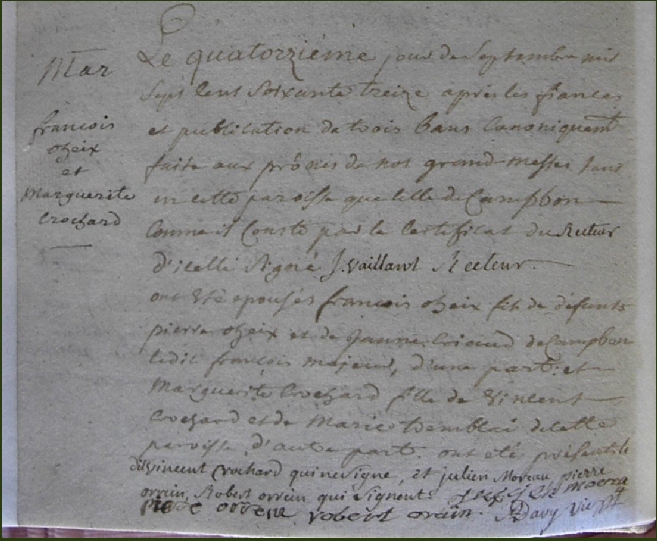 Mar
françois
oheix
et
Marguerite
Crochard
Le quatorzième jour de Septembre mil
Sept Cent Soixante treize après les fiances
et publication de trois bans Canoniquemt
faite aux prônes de nos grand-messes tant
en cette paroisse que celle de Campbon
Comme il Conste par le Certificat du Recteur
d'icelle Signé J. vaillant Recteur.
ont été épousés françois oheix fils de défunts
pierre oheix et de Jeanne de Campbon
ledit françois majeur, d'une part: et
Marguerite Crochard fille de Vincent
Crochard et de Marie tremblai de cette
paroisse, d'autre part. ont été présents le
dit Vincent Crochard qui ne signe, et julien Moreau pierre
orrain, Robert orrain qui Signent.
robert orain. Davy